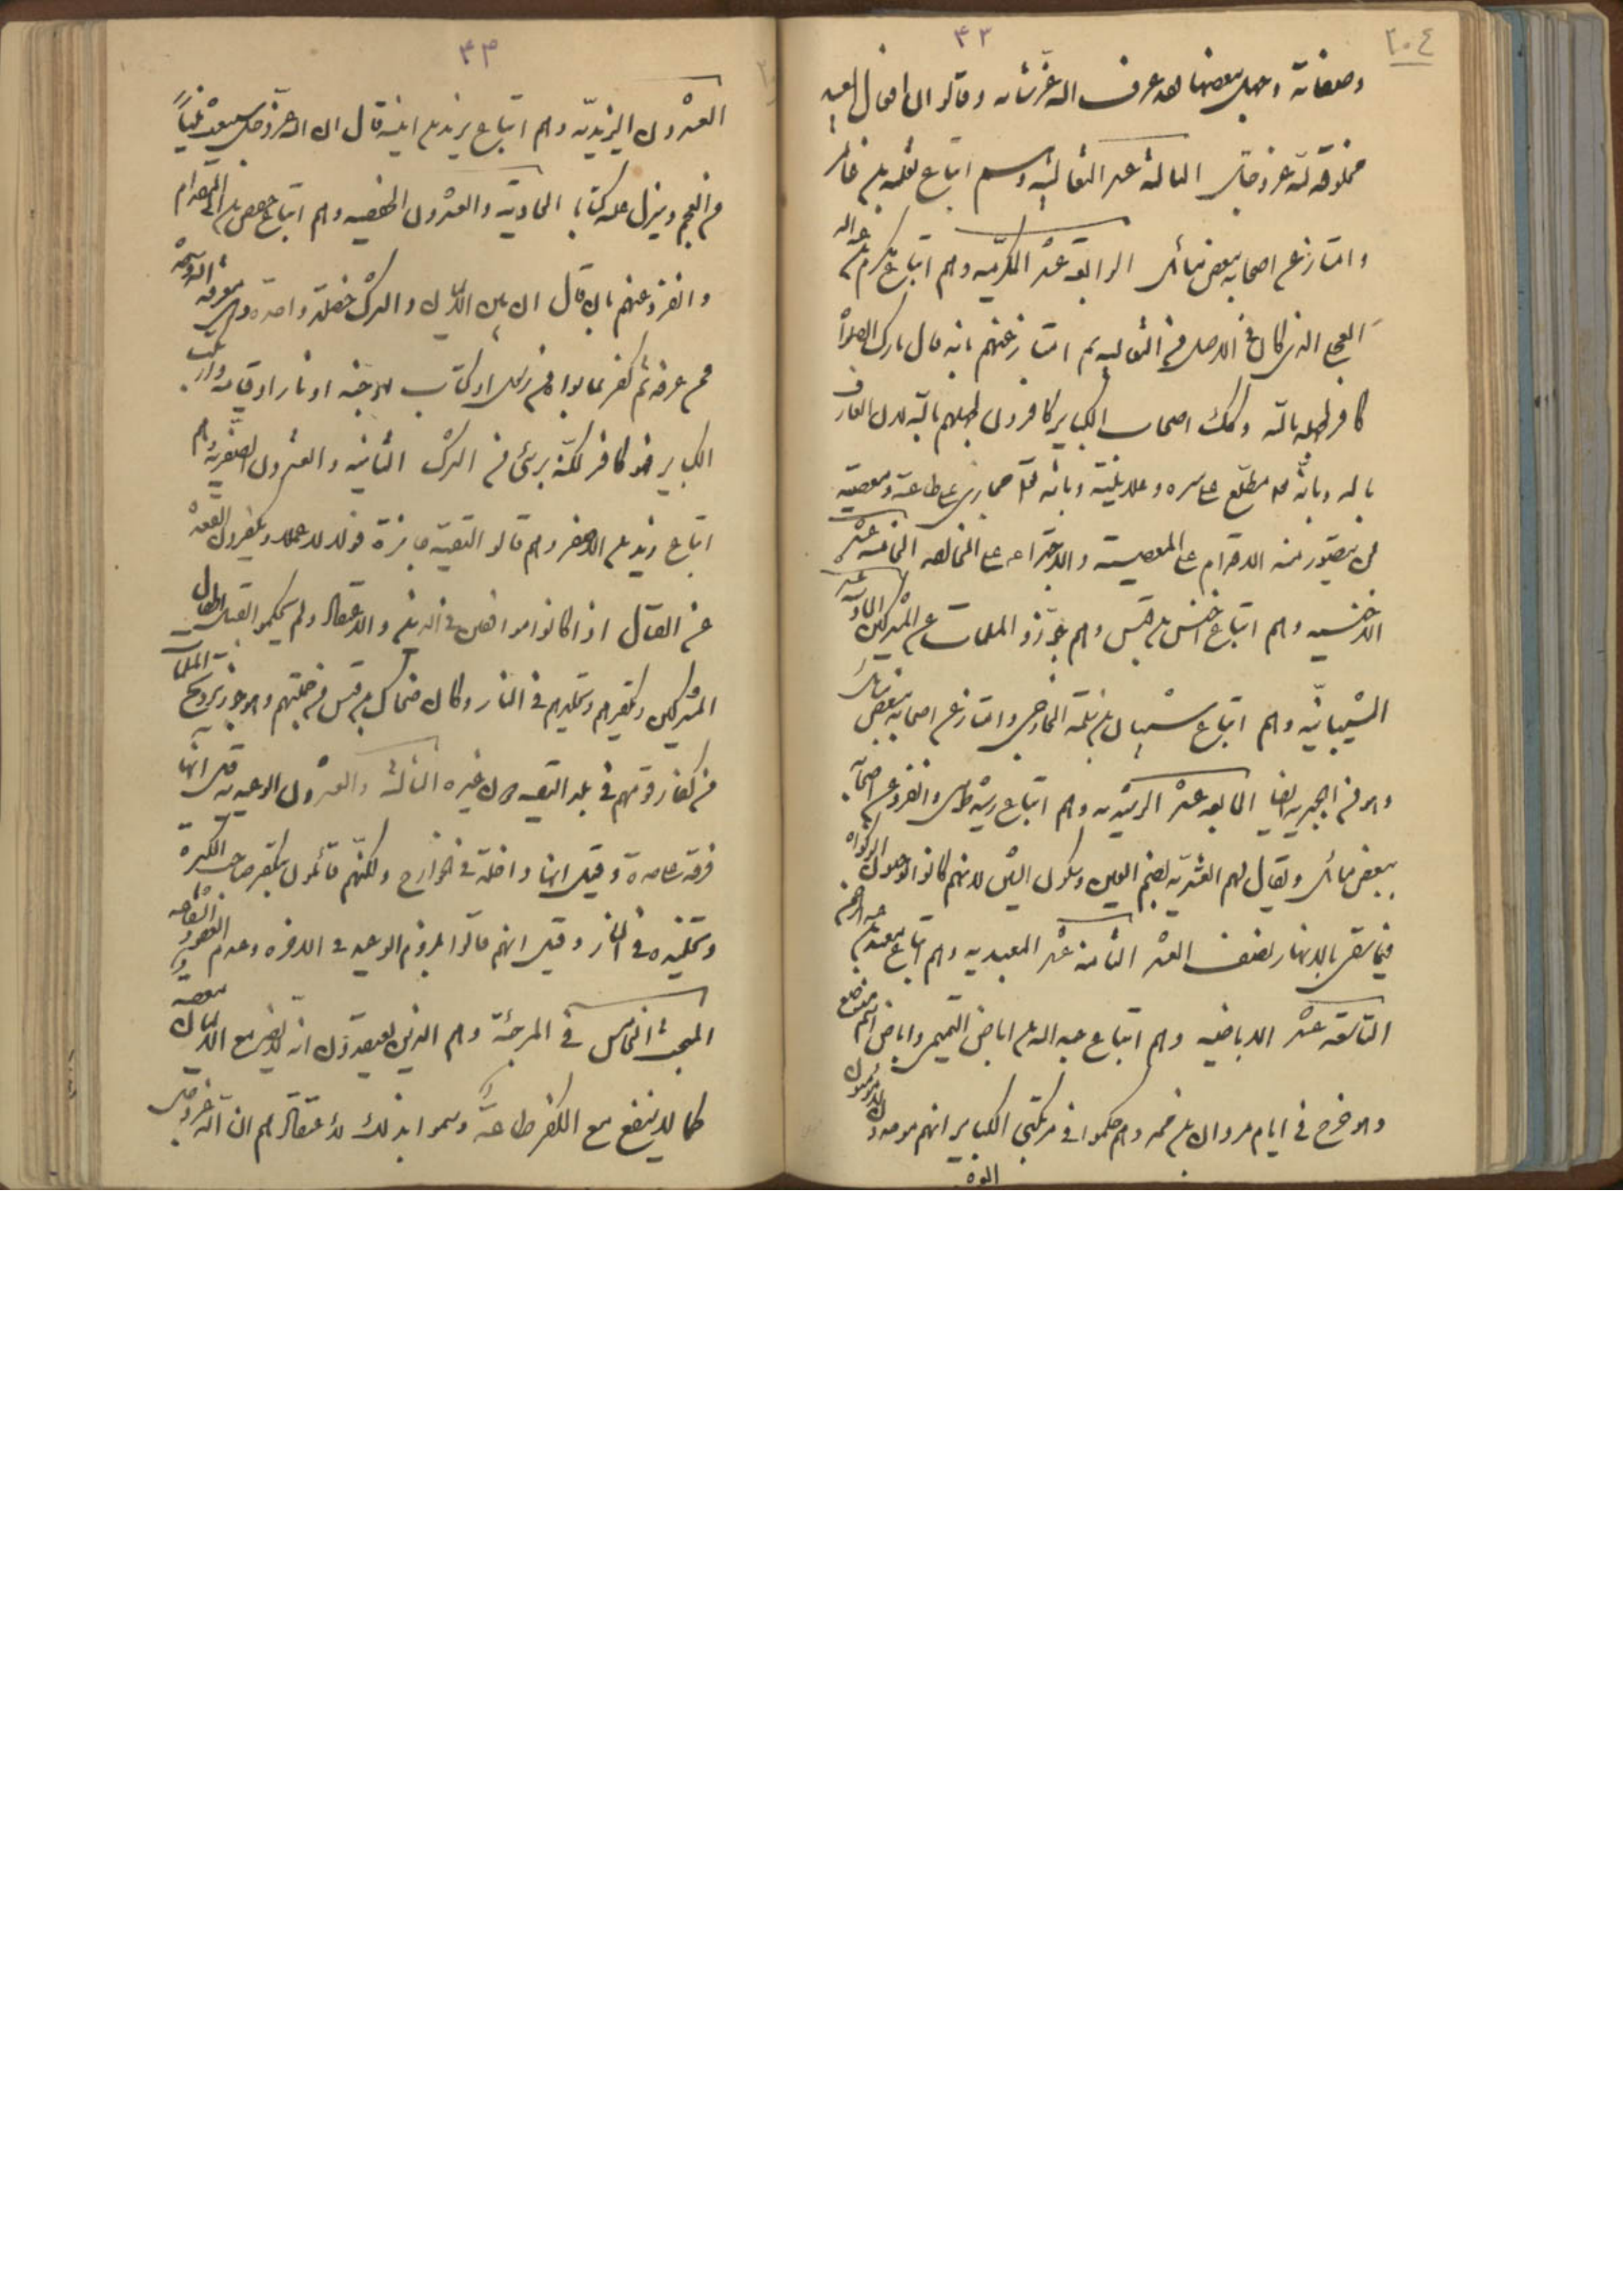 ٢٠٤
٤٢
وصفاته وجهل بعضها فقد عرف الله عز شانه وقالوا ان افعال العبد
مخلوقة لله عز وجل الثالثة عشر الثعالبية وسم اتباع ثعلبة بن عامر
وامتاز عن اصحابه ببعض مسائل الرابعة عشر المكرمية وهم اتباع مكرم بن عبد الله
العجلي الذي كان في الاصل من الثعالبة ثم امتاز عنهم بانه قال تارك الصلاة
كافر لجهله بالله وكذلك اصحاب الكباير كافرون لجهلهم بالله لان العارف
بالله وبانه مطلع على سره وعلانيته وبانه مجازى على طاعته ومعصيته
لن يتصور منه الاقدام على المعصية والاجتراء على المخالفة الخامسة عشر
الاخنسيه وهم اتباع اخنس بن قيس وهم جوزوا المسلمات من المشركين السادسة عشر
الشيبانية وهم اتباع شيبان بن سلمة الخارجي وامتاز عن اصحابه ببعض مسائل
وهو من الجبرية ايضا السابعة عشر الرشيدية وهم اتباع رشيد طوسى وانفرد عن اصحابه
ببعض مسائل ويقال لهم العشرية بضم العين وسكون الشين لانهم كانوا يوجبون الزكواة
فيما سقى بالانهار نصف العشر الثامنة عشر المعبدية وهم اتباع معبد بن عبد الرحمن
التاسعة عشر الاباضيه وهم اتباع عبد الله بن اباض التميمي واباض اسم موضع
وهو خرج في ايام مروان بن محمد وهم حكموا في مرتكبى الكباير انهم موحدون لا مؤمنون
٤٣
العشرون اليزيدية وهم اتباع يزيد بن انيسه قال ان الله عز وجل سيبعث نبياً
من العجم وينزل عليه كتابا الحادية والعشرون الحفصيه وهم اتباع حفص بن ابى المقدام
وانفرد عنهم بان قال ان بين الايمان والشرك خصلة واحدة وهى معرفة الله وحده
فمن عرفه ثم كفر بما سواه من رسل او كتاب او جنه او نار او قيامه وارتكب
الكباير فهو كافر لكنه برئ من الشرك الثانيه والعشرون الاصفرية وهم
اتباع زيد بن الاصفر وهم قالوا التقية جايزة قولا لا عملا ويكفرون القعدة
عن القتال اذا كانوا موافقين في الدين والاعتقاد ولم يحكموا بقتل اطفال
المشركين وتكفيرهم وتخليدهم في النار وكان ضحاك بن قيس من جملتهم وهو جوز تزويج المسلمات
من كفار قومهم في بلد التقيه دون غيره الثالثة والعشرون الوعيدية قيل انها
فرقة على حدة وقيل انها داخلة في الخوارج ولكنهم قائلون بكفر صاحب الكبيرة
وتخليده في النار وقيل انهم قالوا بلزوم الوعيد في الاخره وعدم العفو والشفاعه
المبحث الخامس في المرجئة وهم الذين يعتقدون انه لا يضر مع الايمان معصيه
كما لا ينفع مع الكفر طاعة وسموا بذلك لاعتقادهم ان الله عز وجل